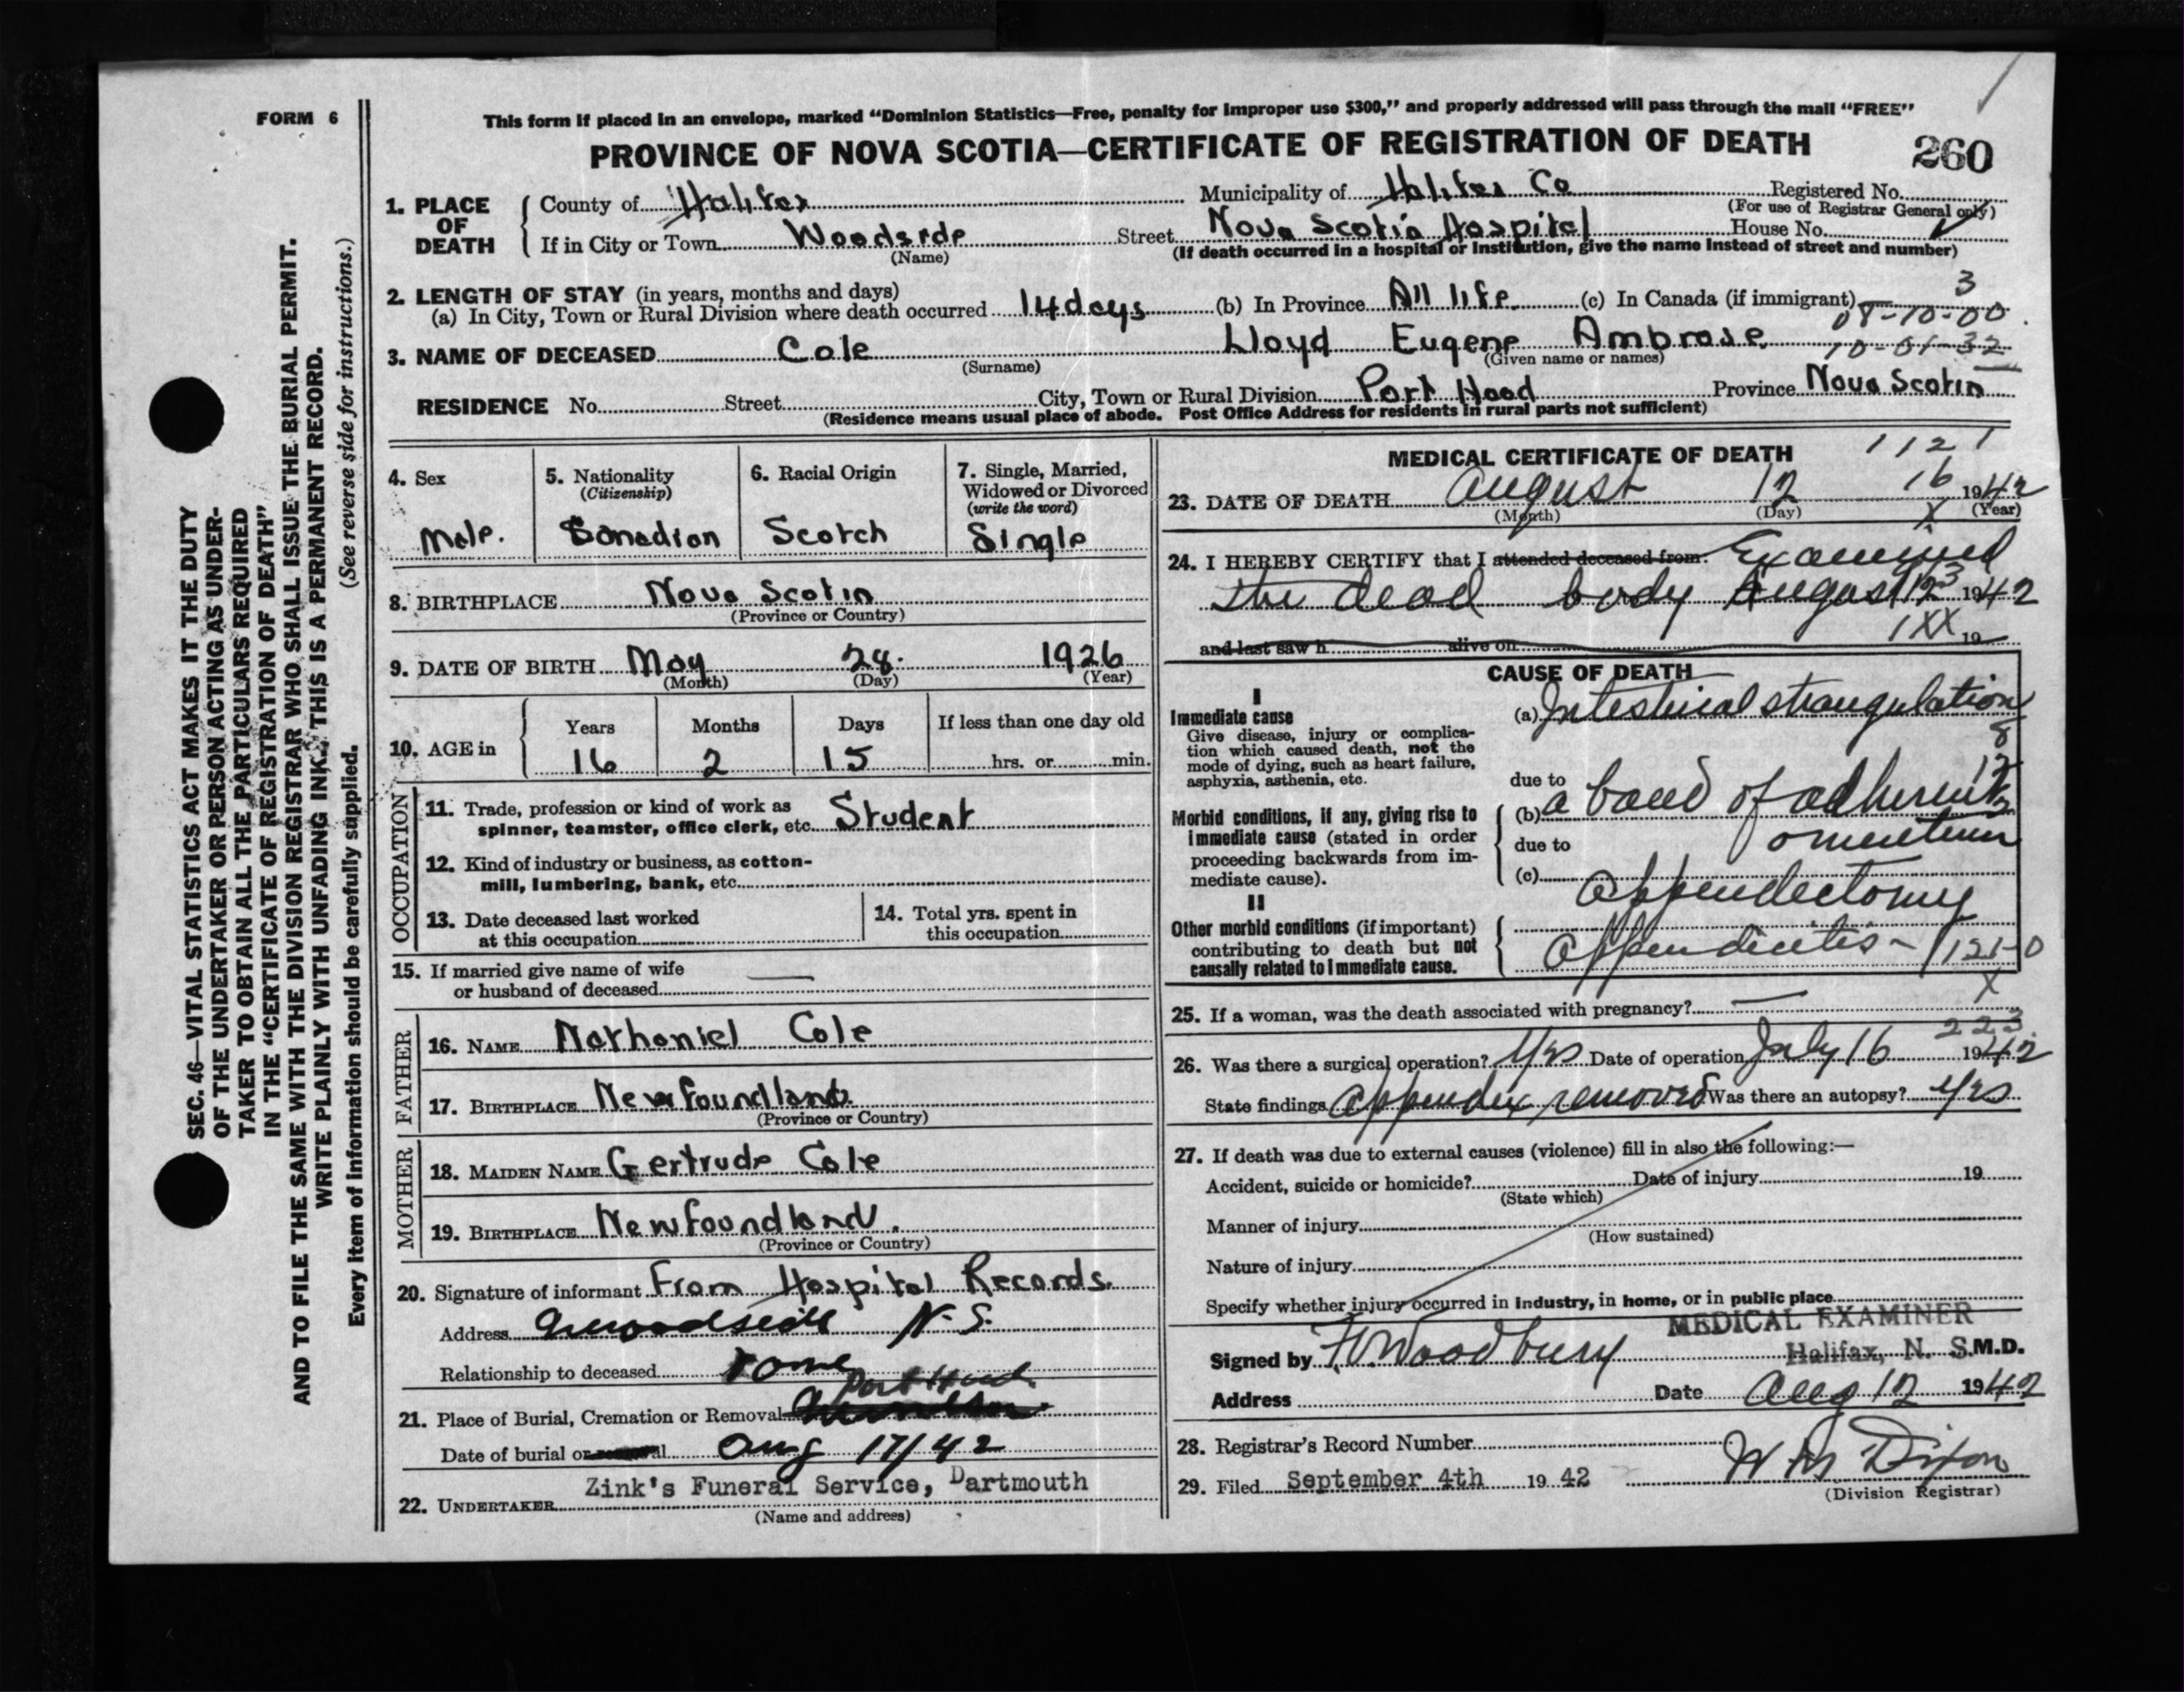 FORM 6
This form if placed in an envelope, marked "Dominion Statistics—Free, penalty for improper use $300," and properly addressed will pass through the mail "FREE"
PROVINCE OF NOVA SCOTIA—CERTIFICATE OF REGISTRATION OF DEATH 260
SEC. 46—VITAL STATISTICS ACT MAKES IT THE DUTY
OF THE UNDERTAKER OR PERSON ACTING AS UNDER-
TAKER TO OBTAIN ALL THE PARTICULARS REQUIRED
IN THE "CERTIFICATE OF REGISTRATION OF DEATH"
AND TO FILE THE SAME WITH THE DIVISION REGISTRAR WHO SHALL ISSUE THE BURIAL PERMIT.
WRITE PLAINLY WITH UNFADING INK. THIS IS A PERMANENT RECORD.
(See reverse side for instructions.)
Every item of information should be carefully supplied.
1. PLACE OF DEATH County of Halifax Municipality of Halifax Co Registered No.
(For use of Registrar General only)
If in City or Town Woodside Street Nova Scotia Hospital House No.
(Name) (If death occurred in a hospital or institution, give the name instead of street and number)
2. LENGTH OF STAY (in years, months and days)
(a) In City, Town or Rural Division where death occurred 14 days (b) In Province All life (c) In Canada (if immigrant) 3
08-10-00
3. NAME OF DECEASED Cole Lloyd Eugene Ambrose 10-01-32
(Surname) (Given name or names)
RESIDENCE No. Street City, Town or Rural Division Port Hood Province Nova Scotia
(Residence means usual place of abode. Post Office Address for residents in rural parts not sufficient)
4. Sex
Male.
5. Nationality
(Citizenship)
Canadian
6. Racial Origin
Scotch
7. Single, Married,
Widowed or Divorced
(write the word)
Single
8. BIRTHPLACE Nova Scotia
(Province or Country)
9. DATE OF BIRTH May 28. 1926
(Month) (Day) (Year)
10. AGE in Years Months Days If less than one day old
16 2 15 hrs. or min.
OCCUPATION
11. Trade, profession or kind of work as
spinner, teamster, office clerk, etc. Student
12. Kind of industry or business, as cotton-
mill, lumbering, bank, etc.
13. Date deceased last worked
at this occupation
14. Total yrs. spent in
this occupation
15. If married give name of wife
or husband of deceased
FATHER
16. NAME Nathaniel Cole
17. BIRTHPLACE Newfoundland.
(Province or Country)
MOTHER
18. MAIDEN NAME Gertrude Cole
19. BIRTHPLACE Newfoundland.
(Province or Country)
20. Signature of informant From Hospital Records.
Address Woodside N.S.
Relationship to deceased none
Port Hood
21. Place of Burial, Cremation or Removal
Date of burial or removal Aug 17/42
22. UNDERTAKER Zink's Funeral Service, Dartmouth
(Name and address)
MEDICAL CERTIFICATE OF DEATH 1121
16
23. DATE OF DEATH August 12 1942
(Month) (Day) (Year)
X
24. I HEREBY CERTIFY that I attended deceased from: Examined
the dead body August 12 1942
3
1XX
and last saw h alive on 19
CAUSE OF DEATH
I
Immediate cause
Give disease, injury or complica-
tion which caused death, not the
mode of dying, such as heart failure,
asphyxia, asthenia, etc.
(a) Intestinal strangulation
8
12
due to
Morbid conditions, if any, giving rise to
immediate cause (stated in order
proceeding backwards from im-
mediate cause).
(b) a band of adherent
due to omentum
(c) Appendectomy
II
Other morbid conditions (if important)
contributing to death but not
causally related to immediate cause.
Appendicitis - 121-0
X
25. If a woman, was the death associated with pregnancy?
223
26. Was there a surgical operation? Yes Date of operation July 16 1942
State findings Appendix removed Was there an autopsy? Yes
27. If death was due to external causes (violence) fill in also the following:—
Accident, suicide or homicide? Date of injury 19
(State which)
Manner of injury
(How sustained)
Nature of injury
Specify whether injury occurred in industry, in home, or in public place
MEDICAL EXAMINER
Halifax, N. S.
Signed by Woodbury M.D.
Address Date Aug 12 1942
28. Registrar's Record Number
29. Filed September 4th 1942 Dixon
(Division Registrar)